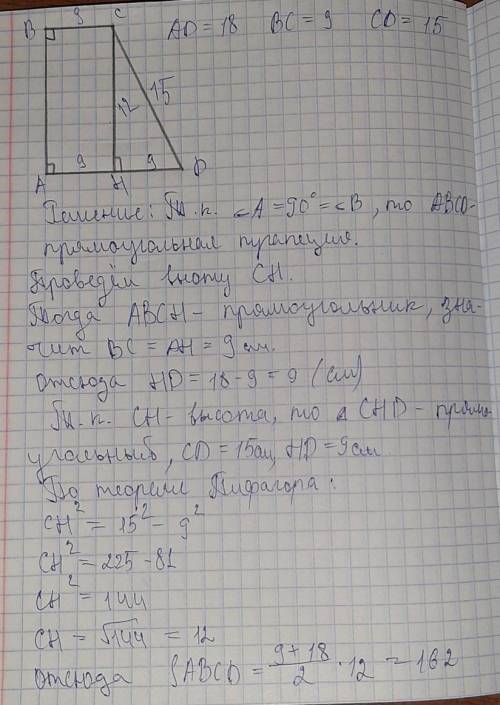 9
B C AD = 18 BC = 9 CD = 15
12 15
9 9
A H D
Решение: Т.к. ∠A = 90° = ∠B, то ABCD -
прямоугольная трапеция.
Проведём высоту CH.
Тогда ABCH - прямоугольник, зна-
чит BC = AH = 9 см.
Отсюда HD = 18 - 9 = 9 (см)
Т.к. CH - высота, то △ CHD - прямо
угольный, CD = 15см, HD = 9см
По теореме Пифагора:
CH² = 15² - 9²
CH² = 225 - 81
CH² = 144
CH = √144 = 12
Отсюда SABCD = (9 + 18)/2 · 12 = 162